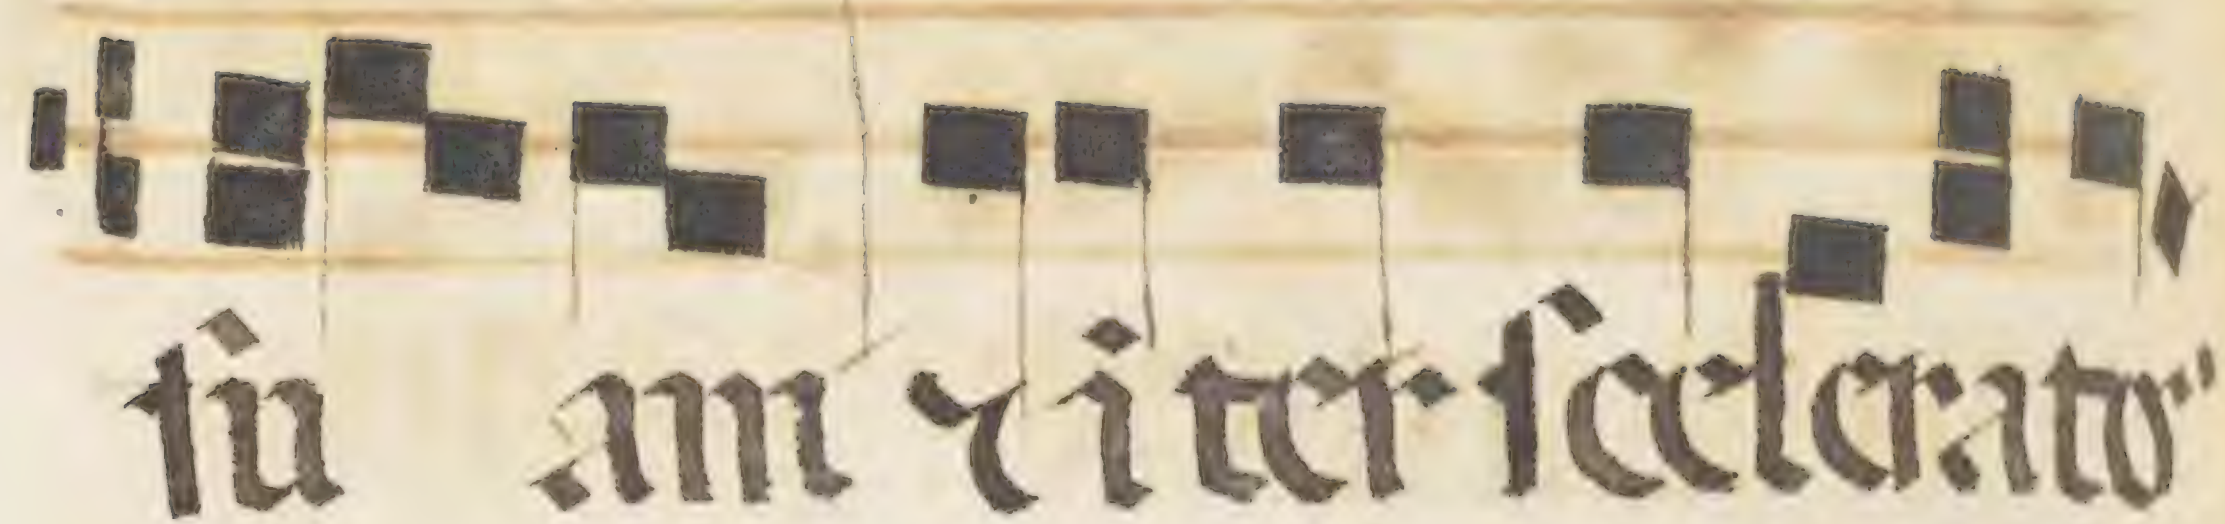 ſu am ⁊ iter ſcelerato